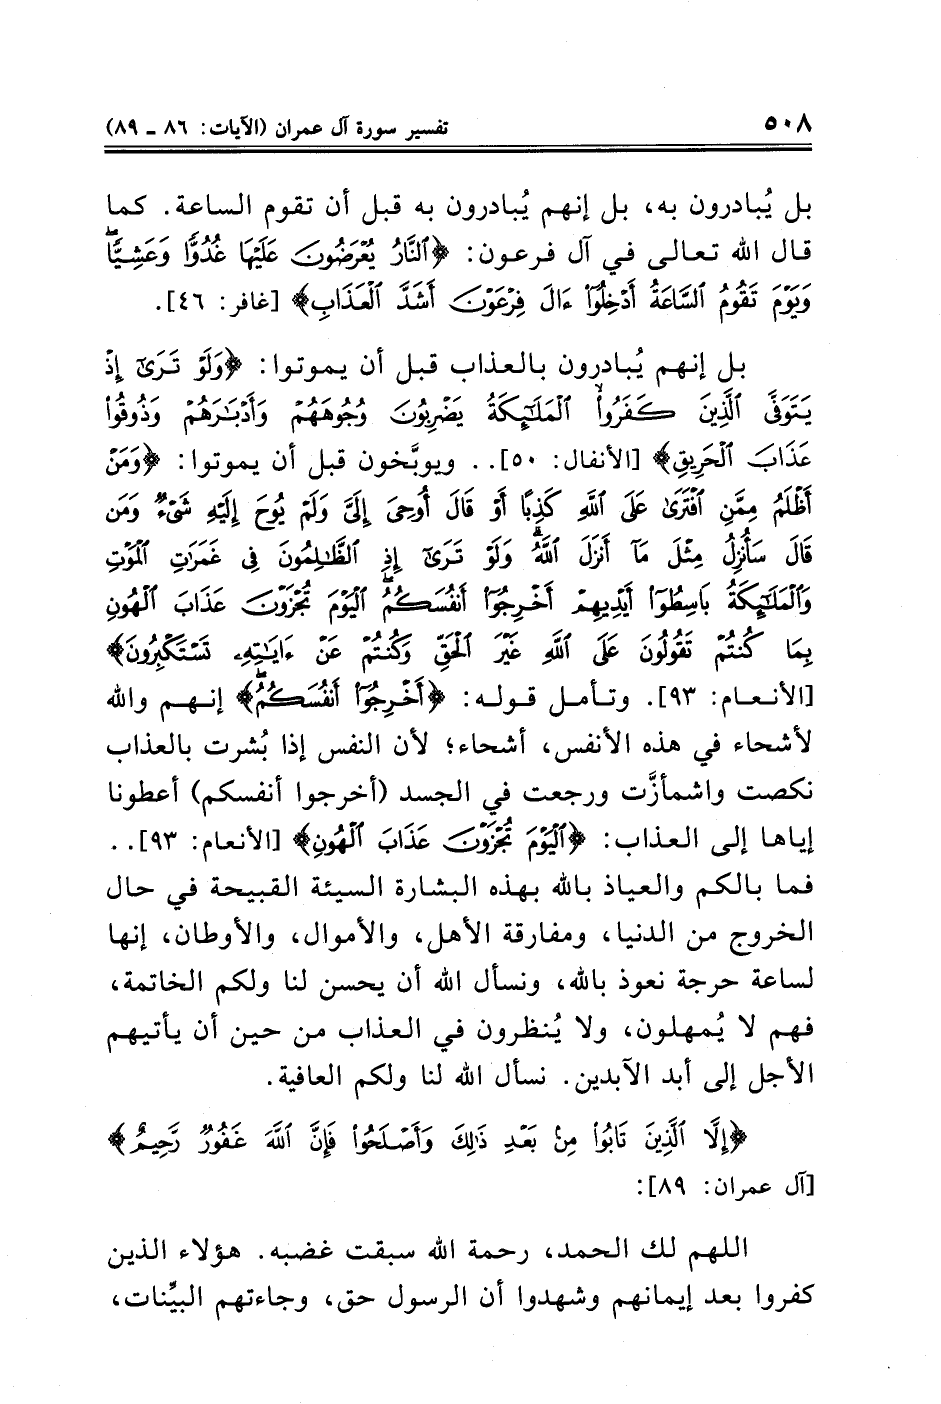 ٥٠٨ تفسير سورة آل عمران (الآيات: ٨٦ ـ ٨٩)
بل يُبادرون به، بل إنهم يُبادرون به قبل أن تقوم الساعة. كما
قال الله تعالى في آل فرعون: ﴿ٱلنَّارُ يُعْرَضُونَ عَلَيْهَا غُدُوًّا وَعَشِيًّاۖ
وَيَوْمَ تَقُومُ ٱلسَّاعَةُ أَدْخِلُوٓا۟ ءَالَ فِرْعَوْنَ أَشَدَّ ٱلْعَذَابِ﴾ [غافر: ٤٦].
بل إنهم يُبادرون بالعذاب قبل أن يموتوا: ﴿وَلَوْ تَرَىٰٓ إِذْ
يَتَوَفَّى ٱلَّذِينَ كَفَرُوا۟ۙ ٱلْمَلَـٰٓئِكَةُ يَضْرِبُونَ وُجُوهَهُمْ وَأَدْبَـٰرَهُمْ وَذُوقُوا۟
عَذَابَ ٱلْحَرِيقِ﴾ [الأنفال: ٥٠].. ويوبَّخون قبل أن يموتوا: ﴿وَمَنْ
أَظْلَمُ مِمَّنِ ٱفْتَرَىٰ عَلَى ٱللَّهِ كَذِبًا أَوْ قَالَ أُوحِىَ إِلَىَّ وَلَمْ يُوحَ إِلَيْهِ شَىْءٌ وَمَن
قَالَ سَأُنزِلُ مِثْلَ مَآ أَنزَلَ ٱللَّهُۗ وَلَوْ تَرَىٰٓ إِذِ ٱلظَّـٰلِمُونَ فِى غَمَرَٰتِ ٱلْمَوْتِ
وَٱلْمَلَـٰٓئِكَةُ بَاسِطُوٓا۟ أَيْدِيهِمْ أَخْرِجُوٓا۟ أَنفُسَكُمُۖ ٱلْيَوْمَ تُجْزَوْنَ عَذَابَ ٱلْهُونِ
بِمَا كُنتُمْ تَقُولُونَ عَلَى ٱللَّهِ غَيْرَ ٱلْحَقِّ وَكُنتُمْ عَنْ ءَايَـٰتِهِۦ تَسْتَكْبِرُونَ﴾
[الأنعام: ٩٣]. وتأمل قوله: ﴿أَخْرِجُوٓا۟ أَنفُسَكُمُۖ﴾ إنهم والله
لأشحاء في هذه الأنفس، أشحاء؛ لأن النفس إذا بُشرت بالعذاب
نكصت واشمأزَّت ورجعت في الجسد (أخرجوا أنفسكم) أعطونا
إياها إلى العذاب: ﴿ٱلْيَوْمَ تُجْزَوْنَ عَذَابَ ٱلْهُونِ﴾ [الأنعام: ٩٣]..
فما بالكم والعياذ بالله بهذه البشارة السيئة القبيحة في حال
الخروج من الدنيا، ومفارقة الأهل، والأموال، والأوطان، إنها
لساعة حرجة نعوذ بالله، ونسأل الله أن يحسن لنا ولكم الخاتمة،
فهم لا يُمهلون، ولا يُنظرون في العذاب من حين أن يأتيهم
الأجل إلى أبد الآبدين. نسأل الله لنا ولكم العافية.
﴿إِلَّا ٱلَّذِينَ تَابُوا۟ مِنۢ بَعْدِ ذَٰلِكَ وَأَصْلَحُوا۟ فَإِنَّ ٱللَّهَ غَفُورٌ رَّحِيمٌ﴾
[آل عمران: ٨٩]:
اللهم لك الحمد، رحمة الله سبقت غضبه. هؤلاء الذين
كفروا بعد إيمانهم وشهدوا أن الرسول حق، وجاءتهم البيِّنات،